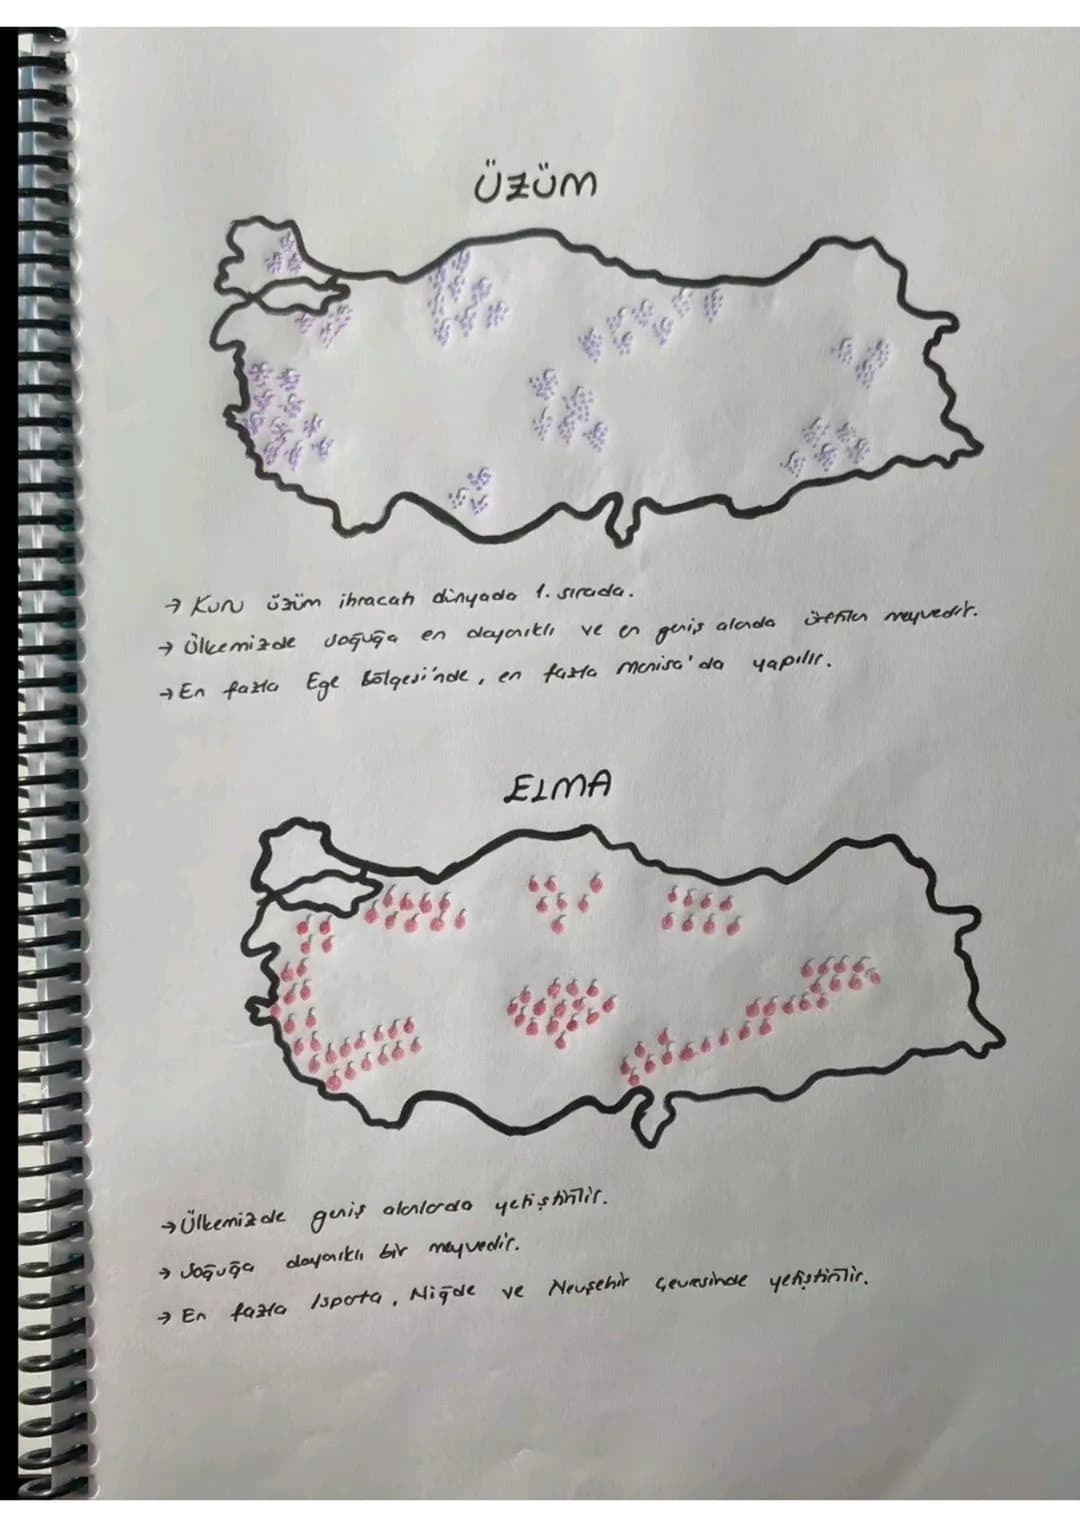 ÜZÜM
→ Kuru üzüm ihracatı dünyada 1. sırada.
→ Ülkemizde soğuğa en dayanıklı ve en geniş alanda üretilen meyvedir.
→ En fazla Ege Bölgesi'nde, en fazla Manisa'da yapılır.
ELMA
→ Ülkemizde geniş alanlarda yetiştirilir.
→ Soğuğa dayanıklı bir meyvedir.
→ En fazla Isparta, Niğde ve Nevşehir çevresinde yetiştirilir.